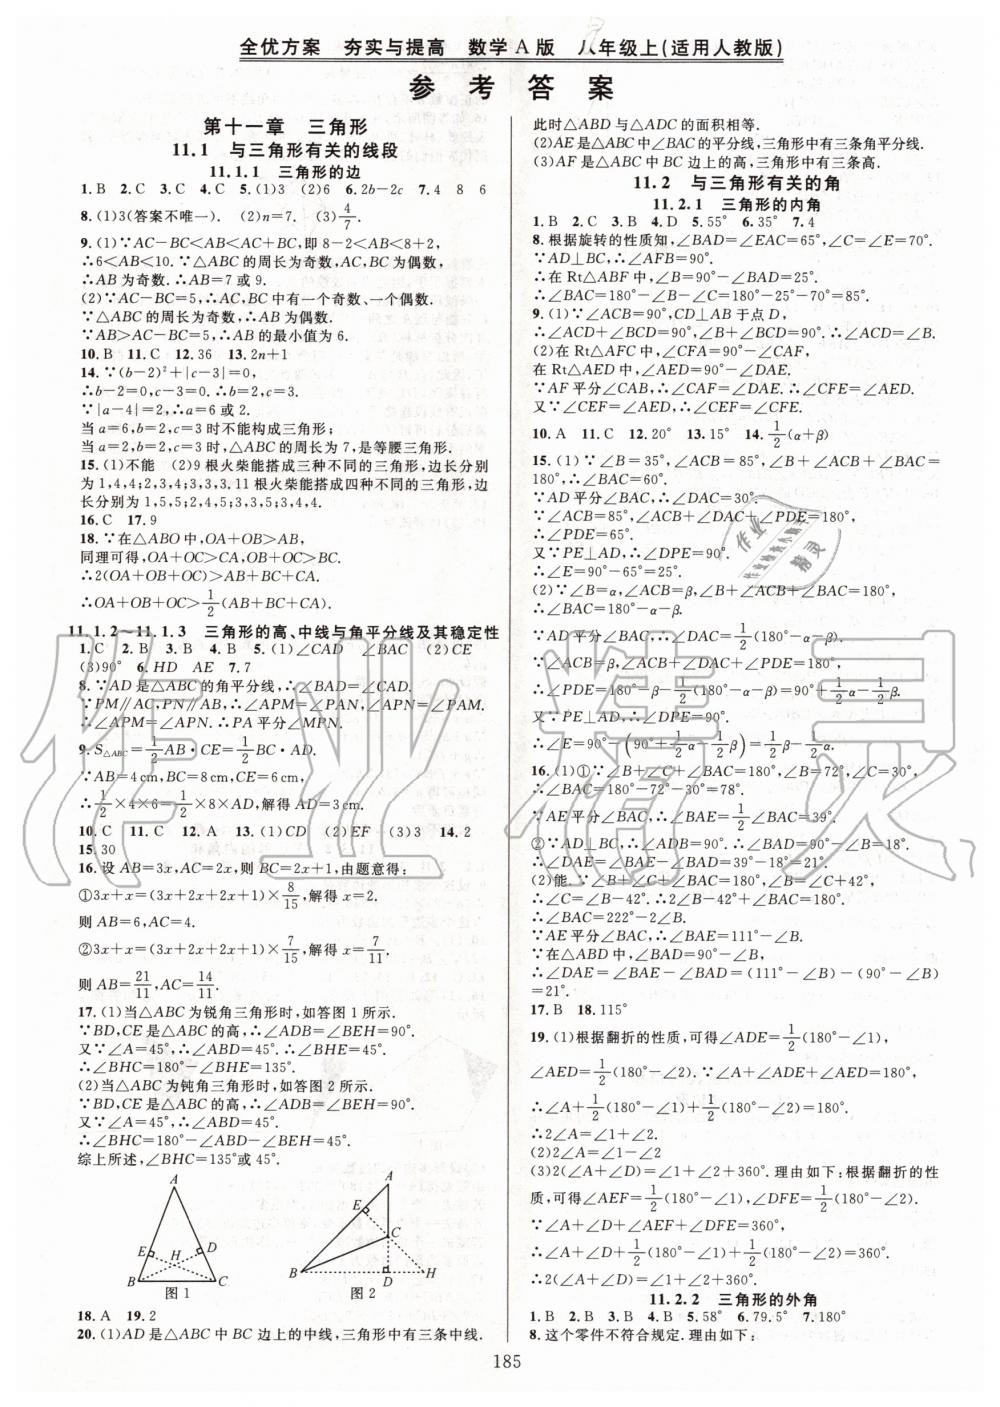 全优方案　夯实与提高　数学A版　八年级上(适用人教版)
参考答案
第十一章　三角形
11.1　与三角形有关的线段
11.1.1　三角形的边
1.B　2.C　3.C　4.C　5.(1)3　(2)6　6.2b−2c　7.4　8　6
8.(1)3(答案不唯一).　(2)n=7.　(3)4/7.
9.(1)∵AC−BC<AB<AC+BC,即8−2<AB<8+2,
∴6<AB<10.∵△ABC的周长为奇数,AC,BC为偶数,
∴AB为奇数.∴AB=7或9.
(2)∵AC−BC=5,∴AC,BC中有一个奇数、一个偶数.
∵△ABC的周长为奇数,∴AB为偶数.
∵AB>AC−BC=5,∴AB的最小值为6.
10.B　11.C　12.36　13.2n+1
14.∵(b−2)²+|c−3|=0,
∴b−2=0,c−3=0.∴b=2,c=3.
∵|a−4|=2,∴a=6或2.
当a=6,b=2,c=3时不能构成三角形;
当a=2,b=2,c=3时,△ABC的周长为7,是等腰三角形.
15.(1)不能　(2)9根火柴能搭成三种不同的三角形,边长分别
为1,4,4;2,3,4;3,3,3.11根火柴能搭成四种不同的三角形,边
长分别为1,5,5;2,4,5;3,3,5;3,4,4.
16.C　17.9
18.∵在△ABO中,OA+OB>AB,
同理可得,OA+OC>CA,OB+OC>BC.
∴2(OA+OB+OC)>AB+BC+CA.
∴OA+OB+OC>1/2(AB+BC+CA).
11.1.2~11.1.3　三角形的高、中线与角平分线及其稳定性
1.C　2.B　3.B　4.B　5.(1)∠CAD　∠BAC　(2)CE
(3)90°　6.HD　AE　7.7
8.∵AD是△ABC的角平分线,∴∠BAD=∠CAD.
∵PM∥AC,PN∥AB,∴∠APM=∠PAN,∠APN=∠PAM.
∴∠APM=∠APN.∴PA平分∠MPN.
9.S△ABC=1/2AB·CE=1/2BC·AD.
∵AB=4cm,BC=8cm,CE=6cm,
∴1/2×4×6=1/2×8×AD,解得AD=3cm.
10.C　11.C　12.A　13.(1)CD　(2)EF　(3)3　14.2
15.30
16.设AB=3x,AC=2x,则BC=2x+1,由题意得:
①3x+x=(3x+2x+2x+1)×8/15,解得x=2.
则AB=6,AC=4.
②3x+x=(3x+2x+2x+1)×7/15,解得x=7/11.
则AB=21/11,AC=14/11.
17.(1)当△ABC为锐角三角形时,如答图1所示.
∵BD,CE是△ABC的高,∴∠ADB=∠BEH=90°.
又∵∠A=45°,∴∠ABD=45°.∴∠BHE=45°.
∴∠BHC=180°−∠BHE=135°.
(2)当△ABC为钝角三角形时,如答图2所示.
∵BD,CE是△ABC的高,∴∠ADB=∠BEH=90°.
又∵∠A=45°,∴∠ABD=45°.
∴∠BHC=180°−∠ABD−∠BEH=45°.
综上所述,∠BHC=135°或45°.
A
E　H　D
B　C
图1
A
E
C
B　D　H
图2
18.A　19.2
20.(1)AD是△ABC中BC边上的中线,三角形中有三条中线.
此时△ABD与△ADC的面积相等.
(2)AE是△ABC中∠BAC的平分线,三角形中有三条角平分线.
(3)AF是△ABC中BC边上的高,三角形中有三条高.
11.2　与三角形有关的角
11.2.1　三角形的内角
1.B　2.C　3.B　4.D　5.55°　6.35°　7.4
8.根据旋转的性质知,∠BAD=∠EAC=65°,∠C=∠E=70°.
∵AD⊥BC,∴∠AFB=90°.
∴在Rt△ABF中,∠B=90°−∠BAD=25°.
∴∠BAC=180°−∠B−∠C=180°−25°−70°=85°.
9.(1)∵∠ACB=90°,CD⊥AB于点D,
∴∠ACD+∠BCD=90°,∠B+∠BCD=90°.∴∠ACD=∠B.
(2)在Rt△AFC中,∠CFA=90°−∠CAF,
在Rt△AED中,∠AED=90°−∠DAE.
∵AF平分∠CAB,∴∠CAF=∠DAE.∴∠CFE=∠AED.
又∵∠CEF=∠AED,∴∠CEF=∠CFE.
10.A　11.C　12.20°　13.15°　14.1/2(α+β)
15.(1)∵∠B=35°,∠ACB=85°,∠B+∠ACB+∠BAC=180°,
∴∠BAC=60°.
∵AD平分∠BAC,∴∠DAC=30°.
∵∠ACB=85°,∠ACB+∠DAC+∠PDE=180°,
∴∠PDE=65°.
又∵PE⊥AD,∴∠DPE=90°.
∴∠E=90°−65°=25°.
(2)∵∠B=α,∠ACB=β,∠B+∠ACB+∠BAC=180°,
∴∠BAC=180°−α−β.
∵AD平分∠BAC,∴∠DAC=1/2(180°−α−β).
∵∠ACB=β,∠ACB+∠DAC+∠PDE=180°,
∴∠PDE=180°−β−1/2(180°−α−β)=90°+1/2α−1/2β.
又∵PE⊥AD,∴∠DPE=90°.
∴∠E=90°−(90°+1/2α−1/2β)=1/2β−1/2α.
16.(1)①∵∠B+∠C+∠BAC=180°,∠B=72°,∠C=30°,
∴∠BAC=180°−72°−30°=78°.
∵AE平分∠BAC,∴∠BAE=1/2∠BAC=39°.
②∵AD⊥BC,∴∠ADB=90°.∴∠BAD=90°−∠B=18°.
∴∠DAE=∠BAE−∠BAD=39°−18°=21°.
(2)能.∵∠B+∠C+∠BAC=180°,∠B=∠C+42°,
∴∠C=∠B−42°.∴2∠B+∠BAC=222°.
∴∠BAC=222°−2∠B.
∵AE平分∠BAC,∴∠BAE=111°−∠B.
∵在△ABD中,∠BAD=90°−∠B,
∴∠DAE=∠BAE−∠BAD=(111°−∠B)−(90°−∠B)
=21°.
17.B　18.115°
19.(1)根据翻折的性质,可得∠ADE=1/2(180°−∠1),
∠AED=1/2(180°−∠2).∵∠A+∠ADE+∠AED=180°,
∴∠A+1/2(180°−∠1)+1/2(180°−∠2)=180°.
∴2∠A=∠1+∠2.
(2)2∠A=∠2
(3)2(∠A+∠D)=∠1+∠2+360°.理由如下:根据翻折的性
质,可得∠AEF=1/2(180°−∠1),∠DFE=1/2(180°−∠2).
∵∠A+∠D+∠AEF+∠DFE=360°,
∴∠A+∠D+1/2(180°−∠1)+1/2(180°−∠2)=360°.
∴2(∠A+∠D)=∠1+∠2+360°.
11.2.2　三角形的外角
1.B　2.B　3.B　4.B　5.58°　6.79.5°　7.180°
8.这个零件不符合规定.理由如下:
185
作业精灵